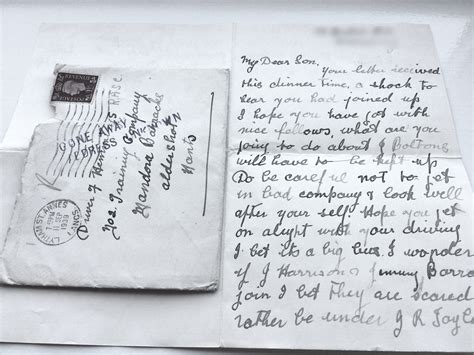 POSTAGE
REVENUE
COME AND
LYTHAM ST. ANNES
LANCS
11 SEP
1939
R.A.S.C.
Driver F
Training Company
Mandora Barracks
Aldershot
Hants
My Dear Son,
Your letter received
this dinner time, a shock to
hear you had joined up
I hope you have got with
nice fellows, what are you
going to do about J Boltons
will have to be kept up
Do be careful not to get
in bad company & look well
after your self. Hope you get
on alright with your driving
I bet its a big bus. I wonder
if J Harrison & Jimmy
join I bet They are scared
rather be under J R